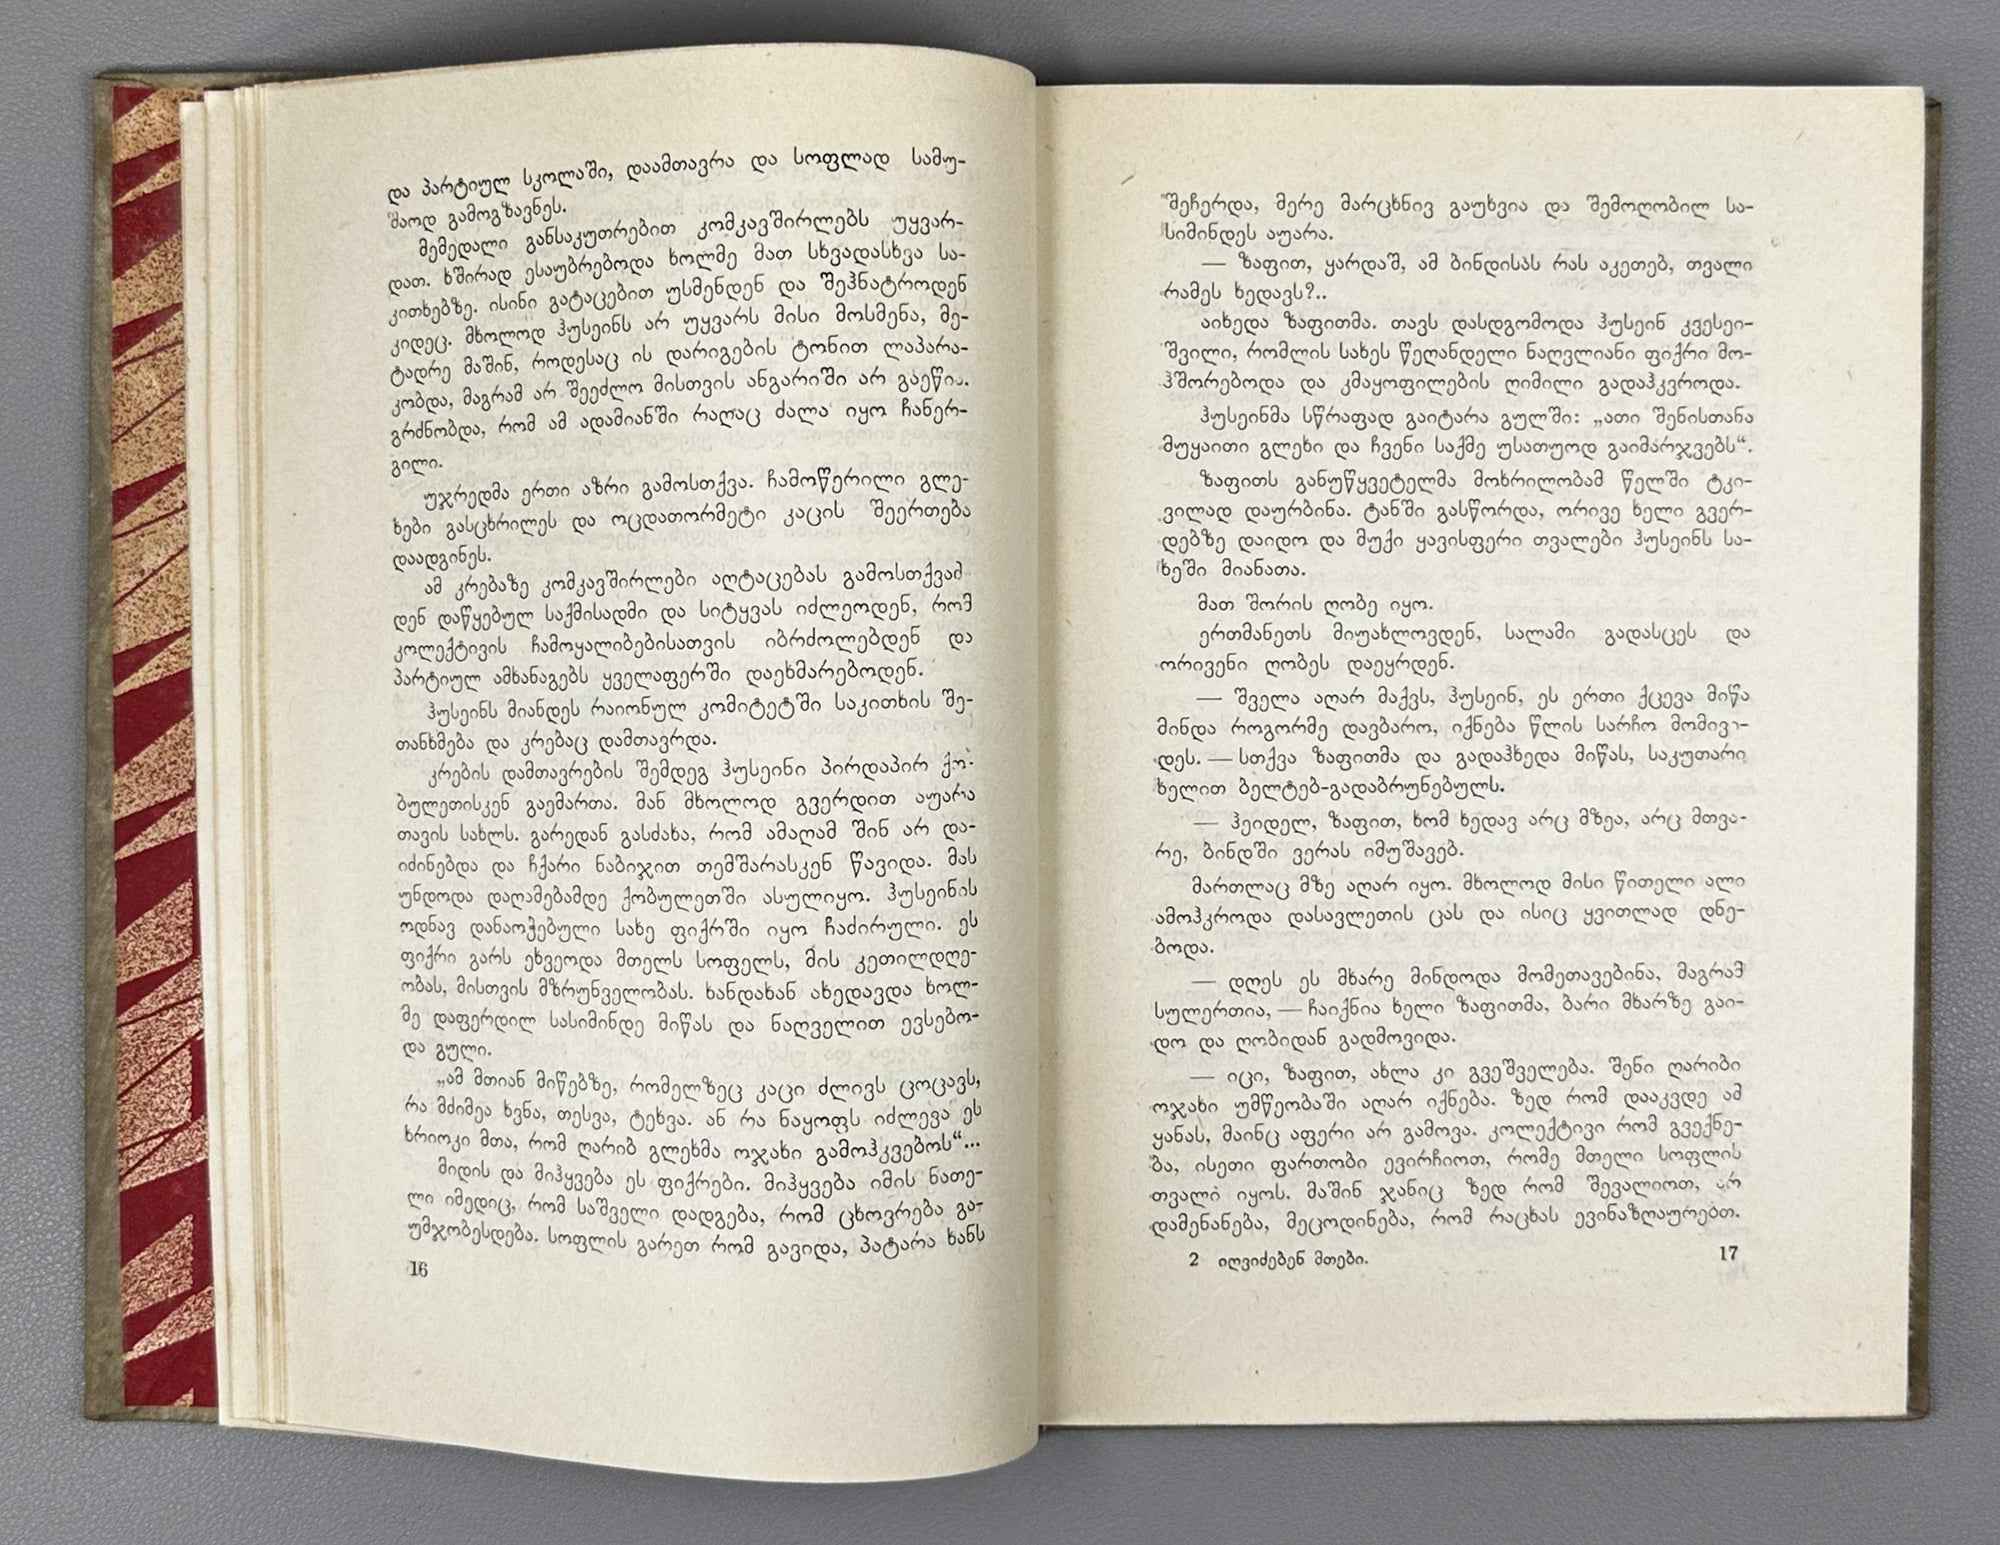 და პარტიულ სკოლაში, დაამთავრა და სოფლად სამუ-
შაოდ გამოგზავნეს.
მემედალი განსაკუთრებით კომკავშირლებს უყვარ-
დათ. ხშირად ესაუბრებოდა ხოლმე მათ სხვადასხვა სა-
კითხებზე. ისინი გატაცებით უსმენდენ და შეჰნატროდენ
კიდეც. მხოლოდ ჰუსეინს არ უყვარს მისი მოსმენა, მე-
ტადრე მაშინ, როდესაც ის დარიგების ტონით ლაპარა-
კობდა, მაგრამ არ შეეძლო მისთვის ანგარიში არ გაეწია.
გრძნობდა, რომ ამ ადამიანში რაღაც ძალა იყო ჩანერ-
გილი.
უჯრედმა ერთი აზრი გამოსთქვა. ჩამოწერილი გლე-
ხები გასცხრილეს და ოცდათორმეტი კაცის შეერთება
დაადგინეს.
ამ კრებაზე კომკავშირლები აღტაცებას გამოსთქვამ-
დენ დაწყებულ საქმისადმი და სიტყვას იძლეოდენ, რომ
კოლექტივის ჩამოყალიბებისათვის იბრძოლებდენ და
პარტიულ ამხანაგებს ყველაფერში დაეხმარებოდენ.
ჰუსეინს მიანდეს რაიონულ კომიტეტში საკითხის შე-
თანხმება და კრებაც დამთავრდა.
კრების დამთავრების შემდეგ ჰუსეინი პირდაპირ ქო-
ბულეთისკენ გაემართა. მან მხოლოდ გვერდით აუარა
თავის სახლს. გარედან გასძახა, რომ ამაღამ შინ არ და-
იძინებდა და ჩქარი ნაბიჯით თემშარასკენ წავიდა. მას
უნდოდა დაღამებამდე ქობულეთში ასულიყო. ჰუსეინის
ოდნავ დანაოჭებული სახე ფიქრში იყო ჩაძირული. ეს
ფიქრი გარს ეხვეოდა მთელს სოფელს, მის კეთილდღე-
ობას, მისთვის მზრუნველობას. ხანდახან ახედავდა ხოლ-
მე დაფერდილ სასიმინდე მიწას და ნაღველით ევსებო-
და გული.
„ამ მთიან მიწებზე, რომელზეც კაცი ძლივს ცოცავს,
რა მძიმეა ხვნა, თესვა, ტეხვა. ან რა ნაყოფს იძლევა ეს
ხრიოკი მთა, რომ ღარიბ გლეხმა ოჯახი გამოჰკვებოს“...
მიდის და მიჰყვება ეს ფიქრები. მიჰყვება იმის ნათე-
ლი იმედიც, რომ საშველი დადგება, რომ ცხოვრება გა-
უმჯობესდება. სოფლის გარეთ რომ გავიდა, პატარა ხანს
16
შეჩერდა, მერე მარცხნივ გაუხვია და შემოღობილ სა-
სიმინდეს აუარა.
— ზაფით, ყარდაშ, ამ ბინდისას რას აკეთებ, თვალი
რამეს ხედავს?..
აიხედა ზაფითმა. თავს დასდგომოდა ჰუსეინ კვესეი-
შვილი, რომლის სახეს წეღანდელი ნაღვლიანი ფიქრი მო-
ჰშორებოდა და კმაყოფილების ღიმილი გადაჰკვროდა.
ჰუსეინმა სწრაფად გაიტარა გულში: „ათი შენისთანა
მუყაითი გლეხი და ჩვენი საქმე უსათუოდ გაიმარჯვებს“.
ზაფითს განუწყვეტელმა მოხრილობამ წელში ტკი-
ვილად დაურბინა. ტანში გასწორდა, ორივე ხელი გვერ-
დებზე დაიდო და მუქი ყავისფერი თვალები ჰუსეინს სა-
ხეში მიანათა.
მათ შორის ღობე იყო.
ერთმანეთს მიუახლოვდენ, სალამი გადასცეს და
ორივენი ღობეს დაეყრდენ.
— შველა აღარ მაქვს, ჰუსეინ, ეს ერთი ქცევა მიწა
მინდა როგორმე დავბარო, იქნება წლის სარჩო მომივი-
დეს. — სთქვა ზაფითმა და გადაჰხედა მიწას, საკუთარი
ხელით ბელტებ-გადაბრუნებულს.
— ჰეიდელ, ზაფით, ხომ ხედავ არც მზეა, არც მთვა-
რე, ბინდში ვერას იმუშავებ.
მართლაც მზე აღარ იყო. მხოლოდ მისი წითელი ალი
ამოჰკროდა დასავლეთის ცას და ისიც ყვითლად დნე-
ბოდა.
— დღეს ეს მხარე მინდოდა მომეთავებინა, მაგრამ
სულერთია, — ჩაიქნია ხელი ზაფითმა, ბარი მხარზე გაი-
დო და ღობიდან გადმოვიდა.
— იცი, ზაფით, ახლა კი გვეშველება. შენი ღარიბი
ოჯახი უმწეობაში აღარ იქნება. ზედ რომ დააკვდე ამ
ყანას, მაინც აფერი არ გამოვა. კოლექტივი რომ გვექნე-
ბა, ისეთი ფართობი ევირჩიოთ, რომე მთელი სოფლის
თვალი იყოს. მაშინ ჯანიც ზედ რომ შევალიოთ, არ
დამენანება, მეცოდინება, რომ რაცხას ევინაზღაურებთ.
2 იღვიძებენ მთები.
17